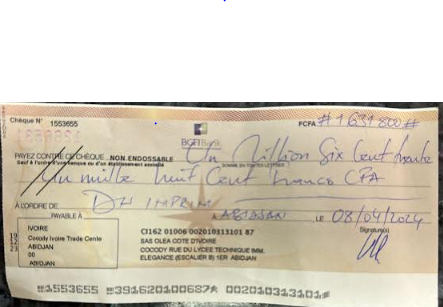 Chèque N° 1553655 FCFA # 1 631 800 #
BGFIBank
PAYEZ CONTRE CE CHÈQUE NON ENDOSSABLE Un Million Six Cent trente
Sauf à l'ordre d'une banque ou d'un établissement assimilé SOMME EN TOUTES LETTRES
Un mille huit Cent francs CFA
À L'ORDRE DE
PAYABLE À ABIDJAN LE 08/04/2024
IVOIRE
Cocody Ivoire Trade Cente
ABIDJAN
00
ABIDJAN
CI162 01006 002010313101 87
SAS OLEA COTE D'IVOIRE
COCODY RUE DU LYCEE TECHNIQUE IMM.
ELEGANCE (ESCALIER B) 1ER ABIDJAN
Signature(s)
1553655 391620100687 002010313101